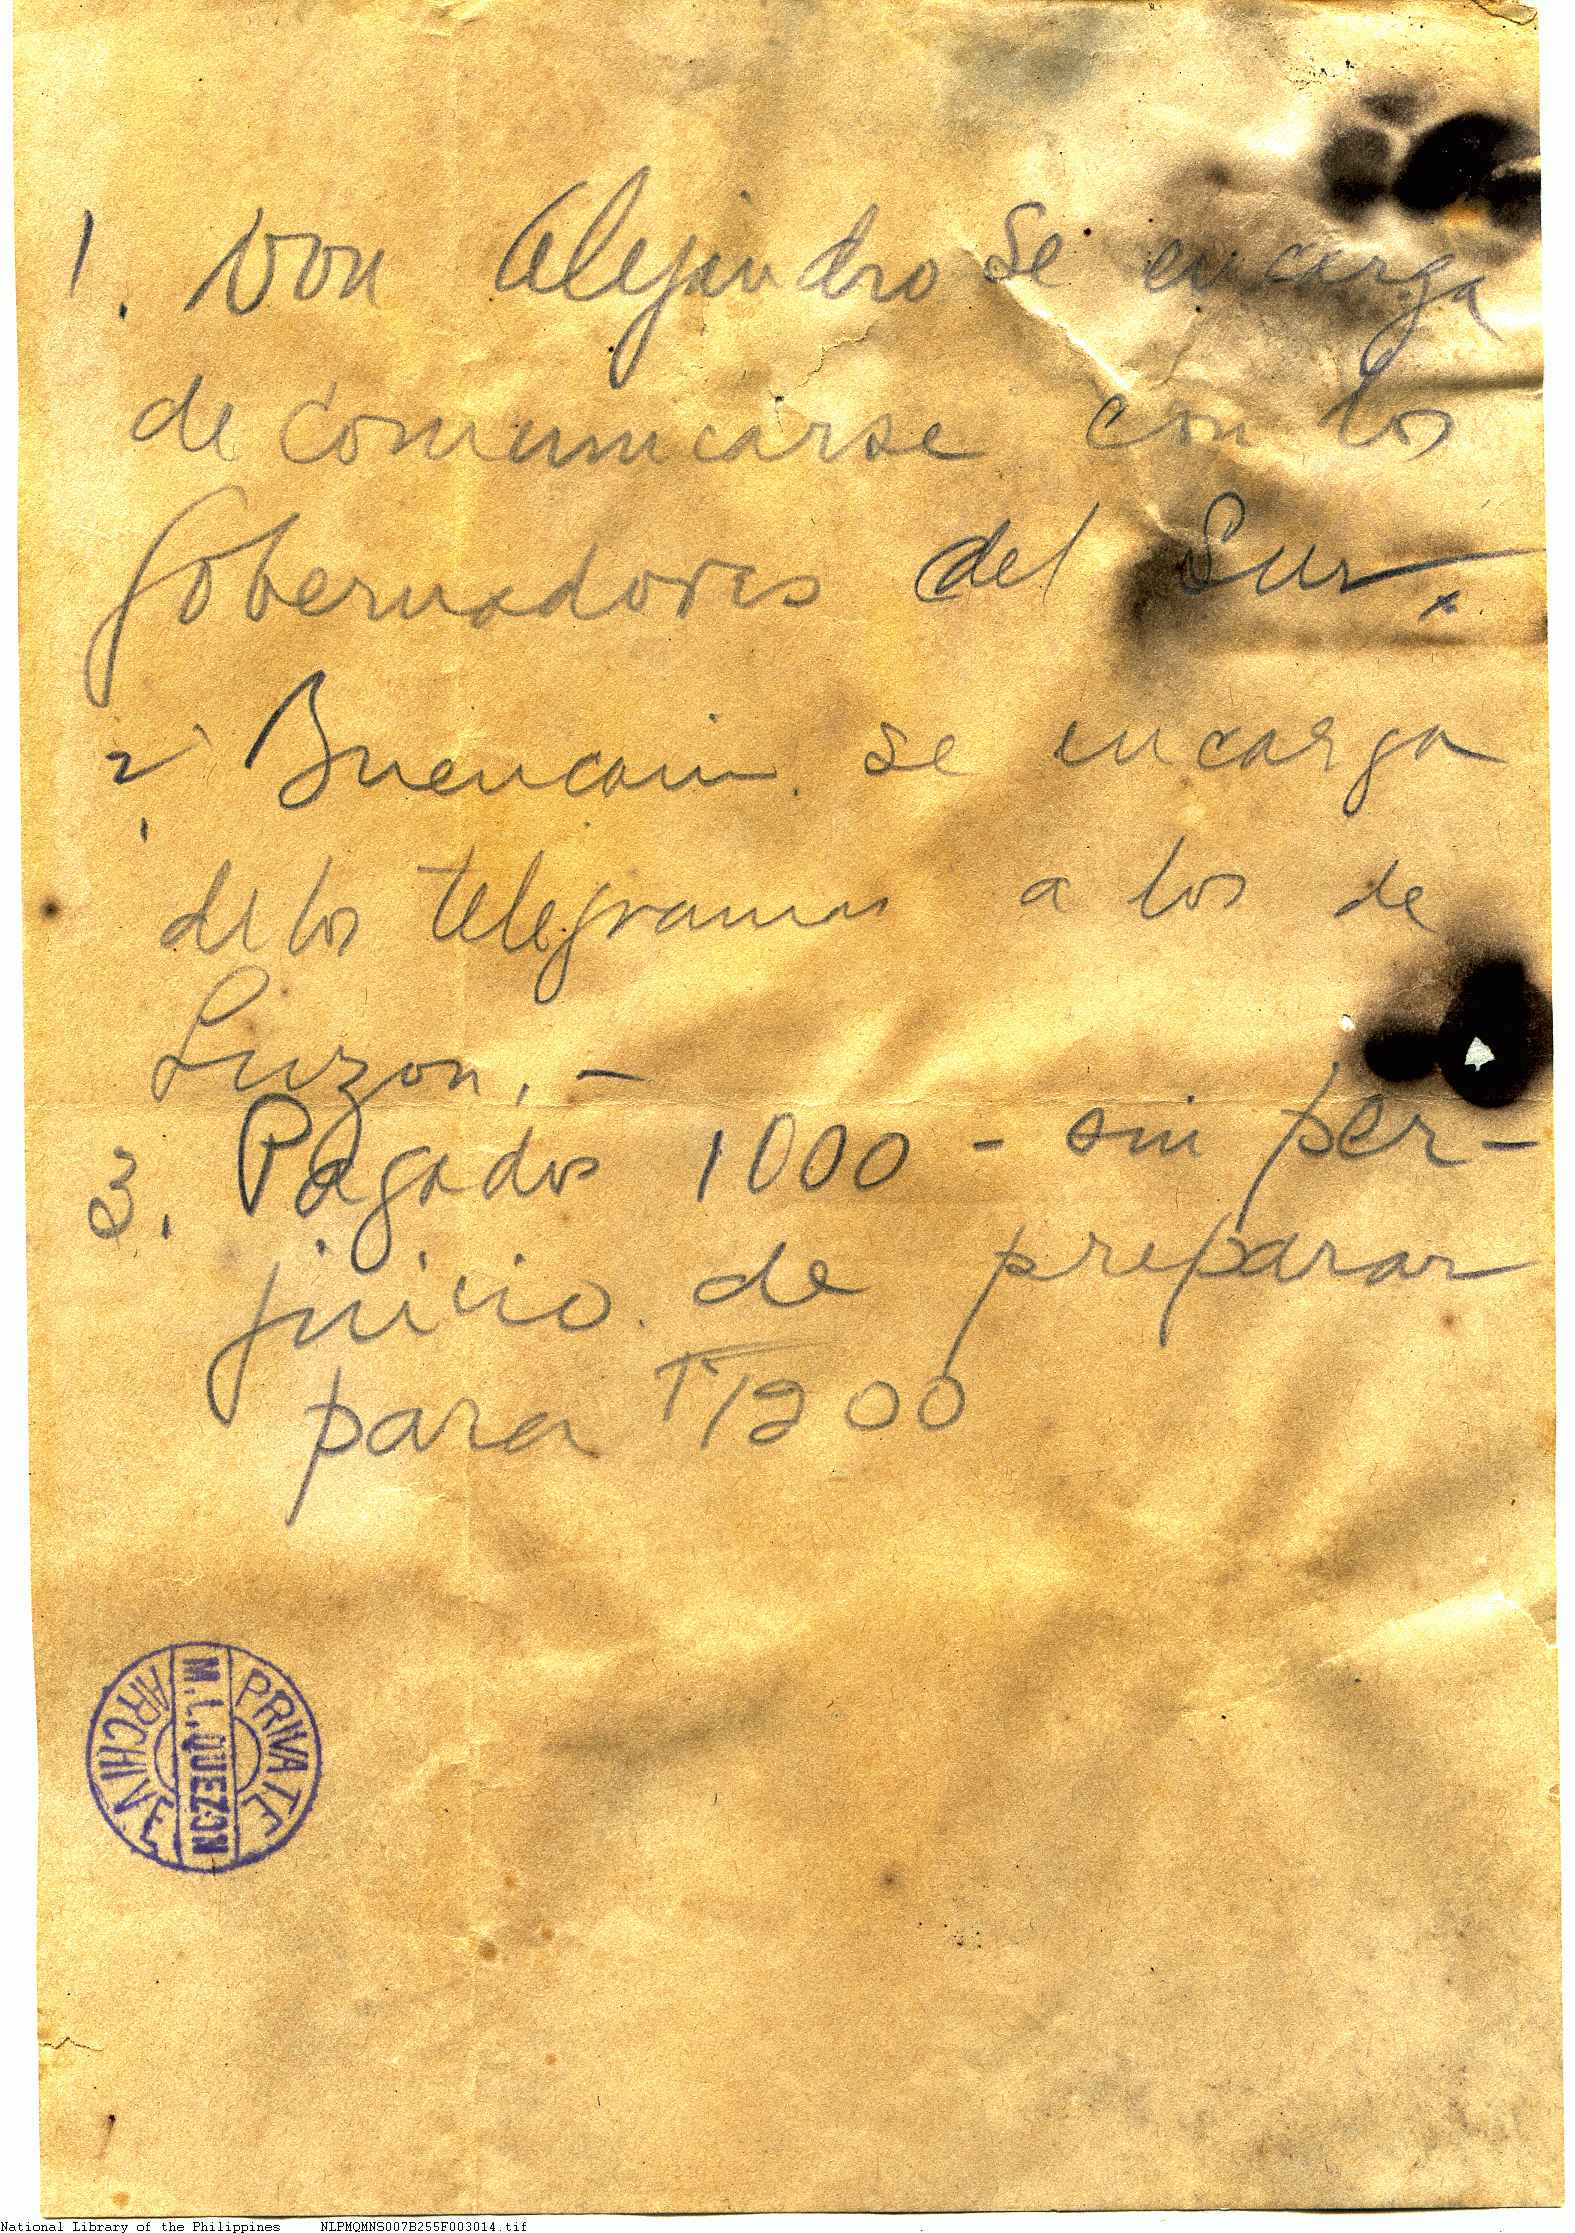 1. Don Alejandro se encarga
de comunicarse con los
Gobernadores del Sur.
2. Buencam. se encarga
de los telegramas a los de
Luzon. –
3. Pagados 1000 – sin per–
juicio de preparar
para ₱1200
PRIVATE
M. L. QUEZON
ARCHIVE
National Library of the Philippines NLPMQMNS007B255F003014.tif